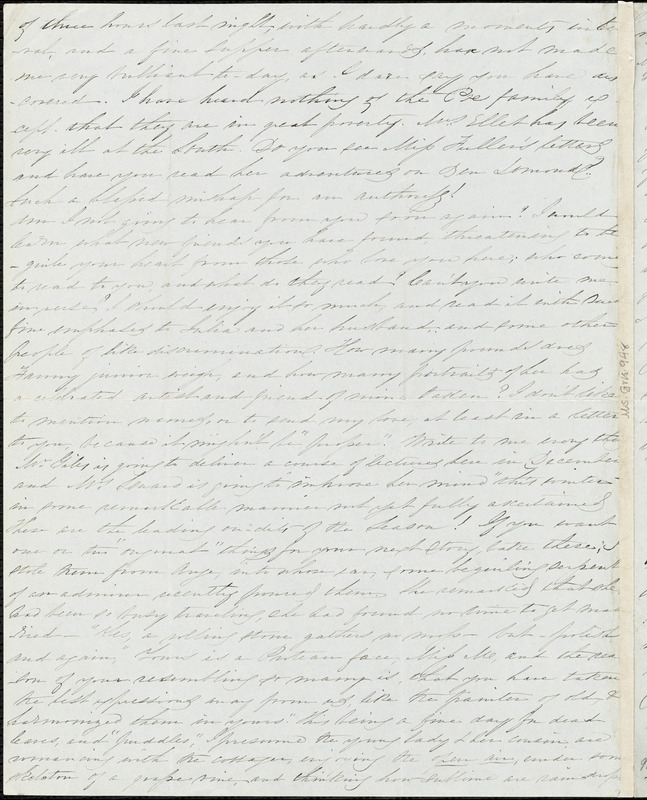 of three hours last night, with hardly a moment's inter
-val, and a fine supper afterwards, has not made
me very brilliant to-day, as I dare say you have dis
-covered. I have heard nothing of the Poe family ex
cept that they are in great poverty. Mrs Ellet has been
very ill at the South. Do you see Miss Fuller's letters
and have you read her adventures on Ben Lomond?
Such a blessed mishap for an authoress!
Am I not going to hear from you soon again? I want to
learn what new friends you have found, threatening to
your heart from those who love you here; who come
to read to you, and what do they read? Can't you write me
in verse? I should enjoy it so much, and read it with
fine emphasis to Julia, and her husband, and some other
people of like discrimination. How many pounds does
Fanny junior weigh, and how many portraits of her has
a celebrated artist and friend of mine taken? I don't like
to mention names, or to send my love, at least in a letter
to you, because it mightn't be "proper". Write to me every thing
Mr Giles is going to deliver a course of lectures here in December
and Mrs is going to improve her mind this winter
in some remarkable manner not yet fully ascertained
These are the leading on dits of the season! If you want
one or two "original" things for your next story, take these; I
stole them from into whose ear, some beguiling serpent
of an admirer recently poured them. She remarked that she
had been so busy traveling, she had found no time to get mar
ried— "Yes, a rolling stone gathers no moss— but polish
and again, "Yours is a face, Miss and the rea
-son of your resembling so many is, that you have taken
the best expressions away from us, like the painter of old, &
harmonized them in yours" this being a fine day for dead
leaves, and "puddles", I presume the young lady & her cousin, are
romancing with the cottagers, enjoying the open air, under some
skeleton of a grape vine, and thinking how sublime are rain drops
MS. B.1.6 v.